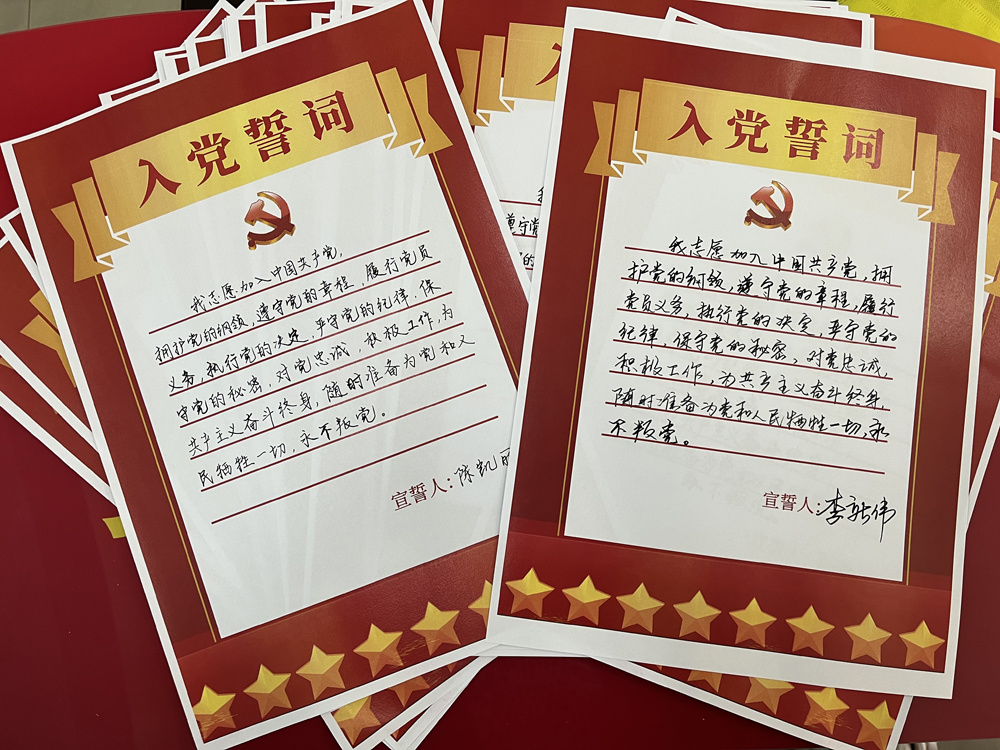 入党誓词
我志愿加入中国共产党，
拥护党的纲领，遵守党的章程，履行党员
义务，执行党的决定，严守党的纪律，保
守党的秘密，对党忠诚，积极工作，为
共产主义奋斗终身，随时准备为党和人
民牺牲一切，永不叛党。
宣誓人：陈凯丽
入党誓词
我志愿加入中国共产党，拥
护党的纲领，遵守党的章程，履行
党员义务，执行党的决定，严守党的
纪律，保守党的秘密，对党忠诚，
积极工作，为共产主义奋斗终身，
随时准备为党和人民牺牲一切，永
不叛党。
宣誓人：李新伟
遵守党
的